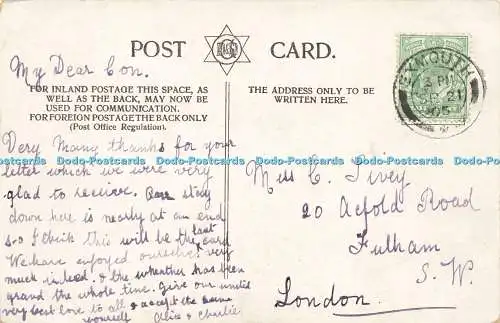 POST CARD.
My Dear Con.
FOR INLAND POSTAGE THIS SPACE, AS
WELL AS THE BACK, MAY NOW BE
USED FOR COMMUNICATION.
FOR FOREIGN POSTAGE THE BACK ONLY
(Post Office Regulation).
Very Many thanks for your
letter which we were very
glad to receive. Our stay
down here is nearly at an end
so I think this will be the last card
We have enjoyed ourselves very
much indeed & the wheather has been
grand the whole time. Give our
very best love to all & accept the same
yourself Alice & Charlie
THE ADDRESS ONLY TO BE
WRITTEN HERE.
Miss C. Tivey
20 Acfold Road
Fulham
S. W.
London.
EXMOUTH
3 PM
21
05
Dodo-Postcards Dodo-Postcards Dodo-Postcards Dodo-Postcards Dodo-Postcards